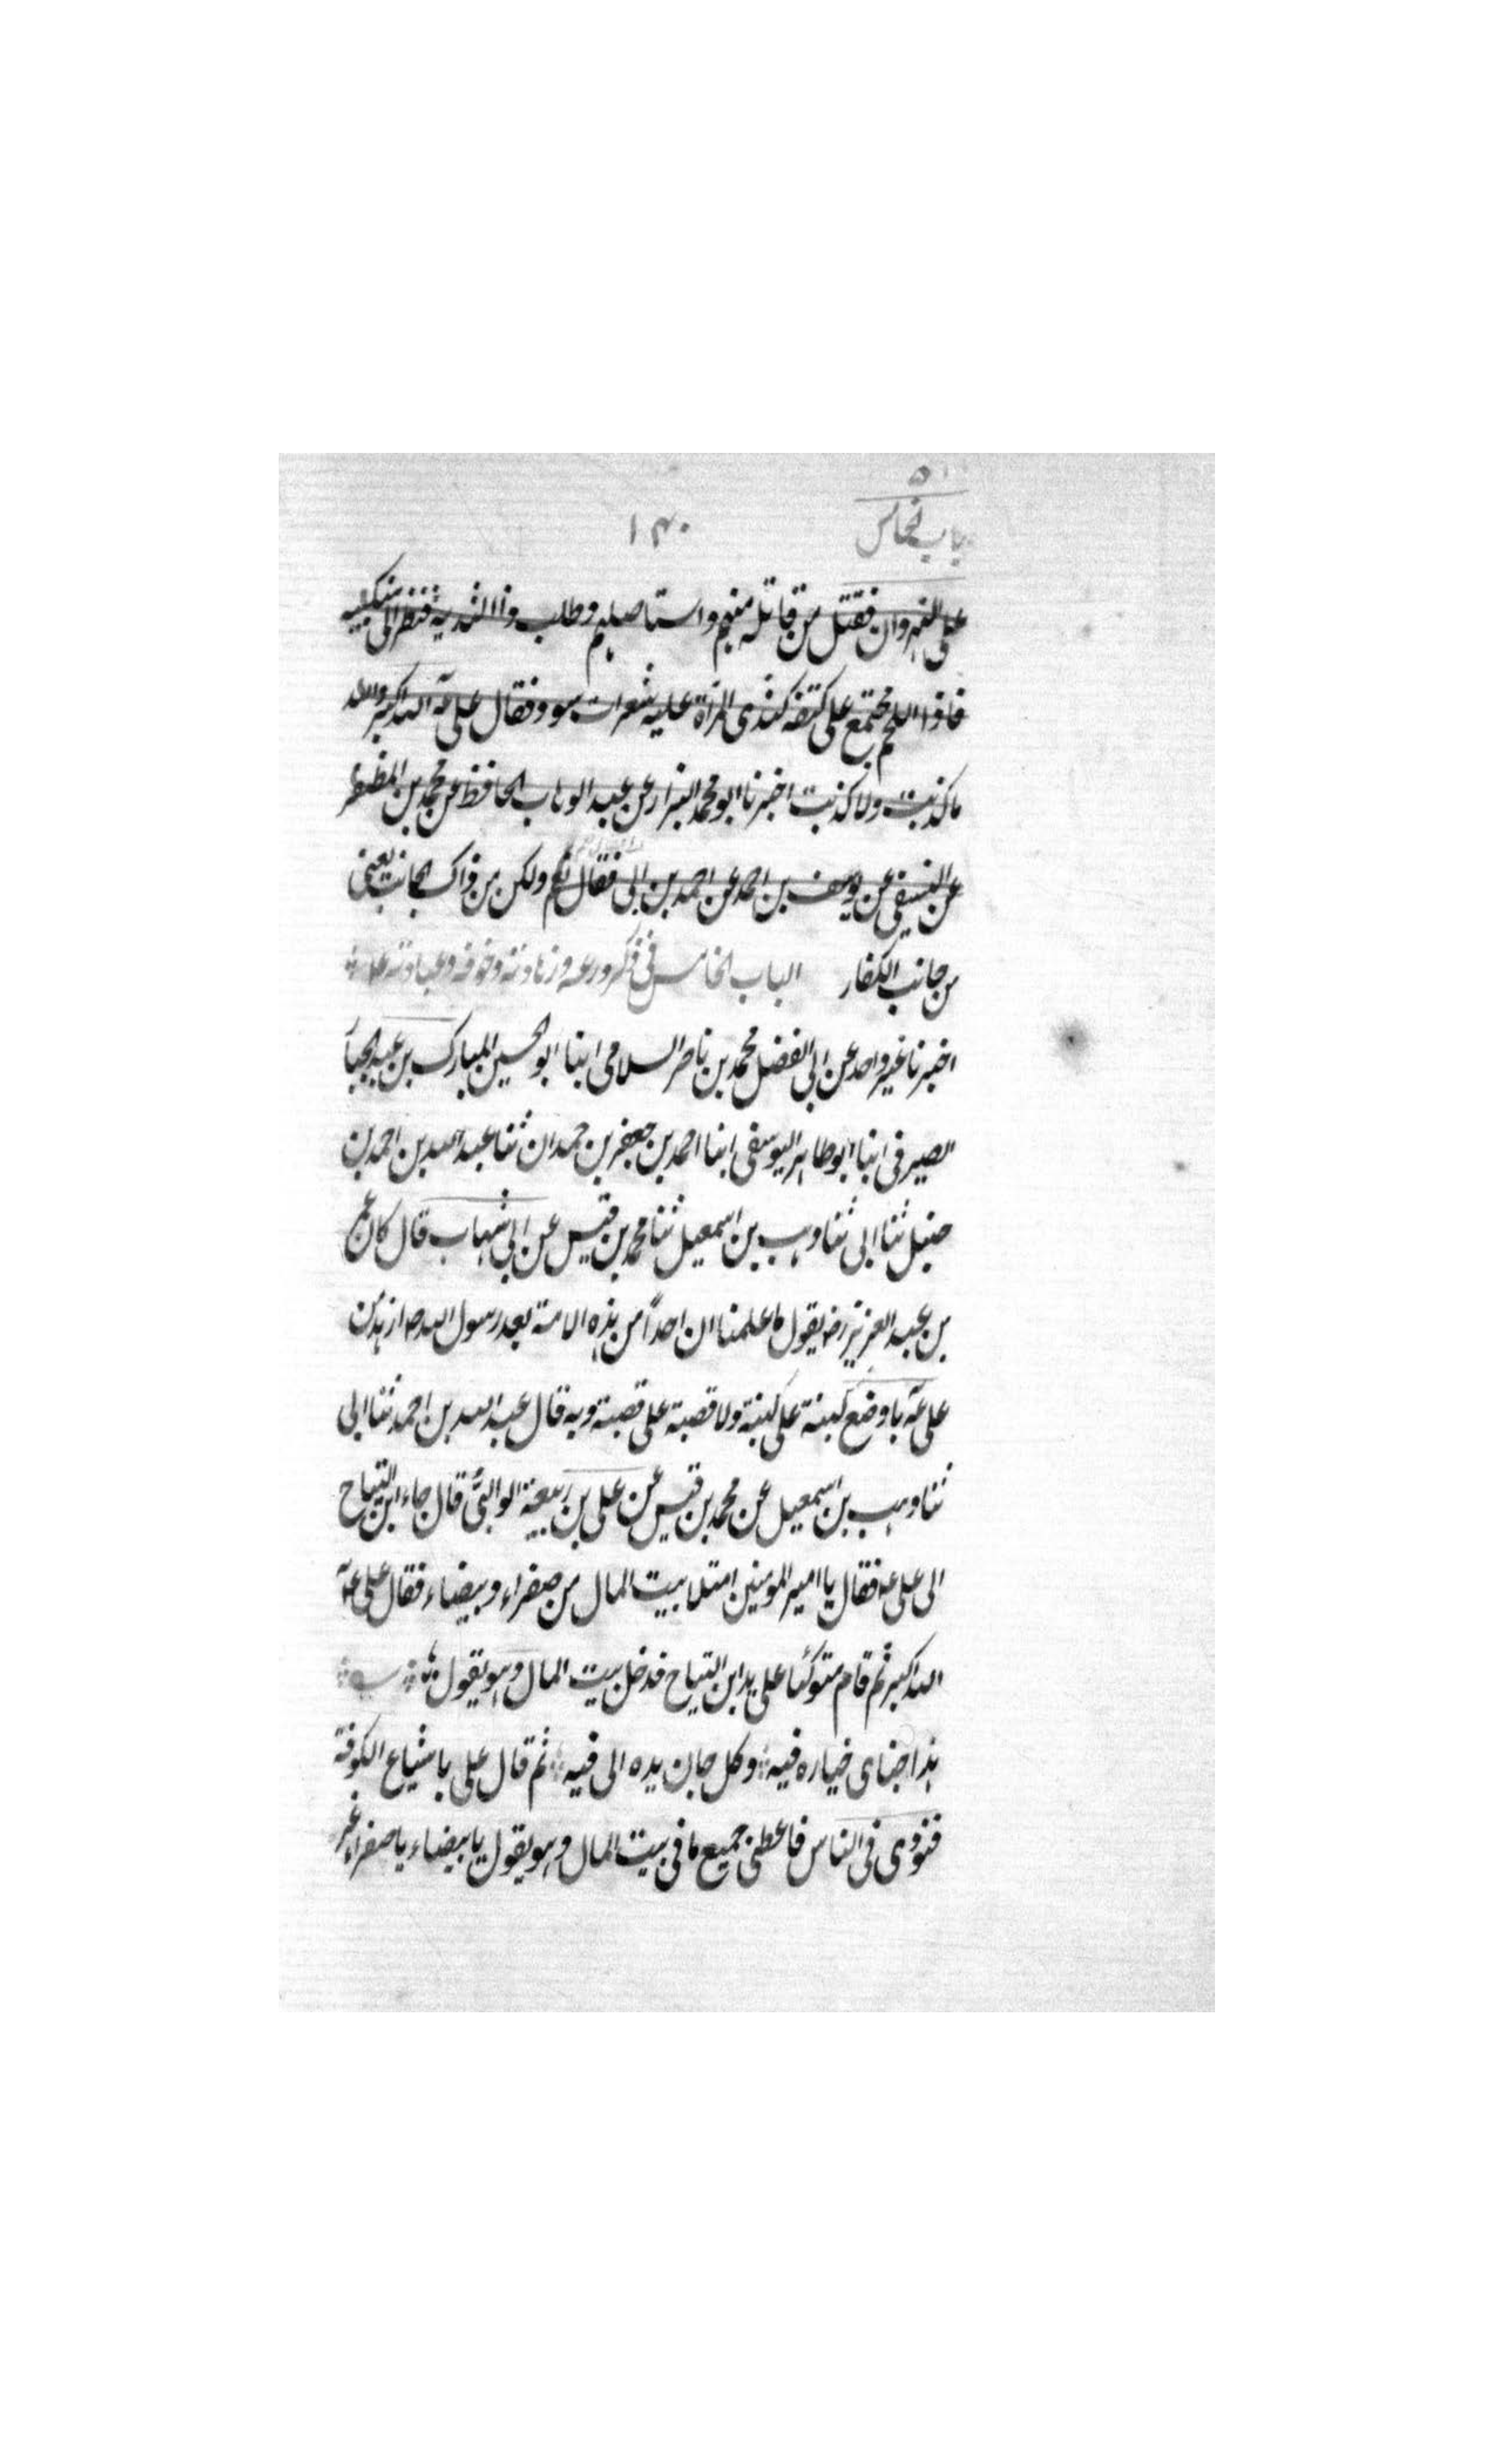 باب خامس
۱۳۰
على النهروان فقتل من قاتله منهم واستاصلهم وطلب ذا الثدية فنظر الى منكبيه
فاذا اللحم مجتمع على كتفه كثدى المرأة عليه شعرات سود فقال على عم الله اكبر والله
ما كذبت ولا كذبت اخبرنا ابو محمد البزار عن عبد الوهاب الحافظ عن محمد بن المظفر
عن العتيقى عن يوسف بن احمد عن احمد بن ابى فقال نعم ولكن من ذاك الجانب يعنى
من جانب الكفار الباب الخامس فى ذكر ورعه وزهادته وخوفه وعبادته
اخبرنا غير واحد عن ابى الفضل محمد بن ناصر السلامى ابنا ابو الحسين المبارك بن عبد الجبا
الصيرفى ابنا ابو طاهر اليوسفى ابنا احمد بن جعفر بن حمدان ثنا عبد الله بن احمد بن
حنبل ثنا ابى ثنا وهب بن اسمعيل ثنا محمد بن قيس عن ابى شهاب قال كان عمر
بن عبد العزيز رض يقول ما علمنا ان احداً من هذه الامة بعد رسول الله ص ازهد من
على عم ما وضع لبنة على لبنة ولا قصبة على قصبة وبه قال عبد الله بن احمد ثنا ابى
ثنا وهب بن اسمعيل عن محمد بن قيس عن على بن ربيعة الوالبى قال جاء ابن التياح
الى على عم فقال يا امير المومنين امتلا بيت المال من صفراء وبيضاء فقال على عم
الله اكبر ثم قام متوكئا على يد ابن التياح فدخل بيت المال وهو يقول
هذا جناى خياره فيه وكل جان يده الى فيه ثم قال على باشياع الكوفة
فنودى فى الناس فاعطى جميع ما فى بيت المال وهو يقول يا بيضاء يا صفراء غر